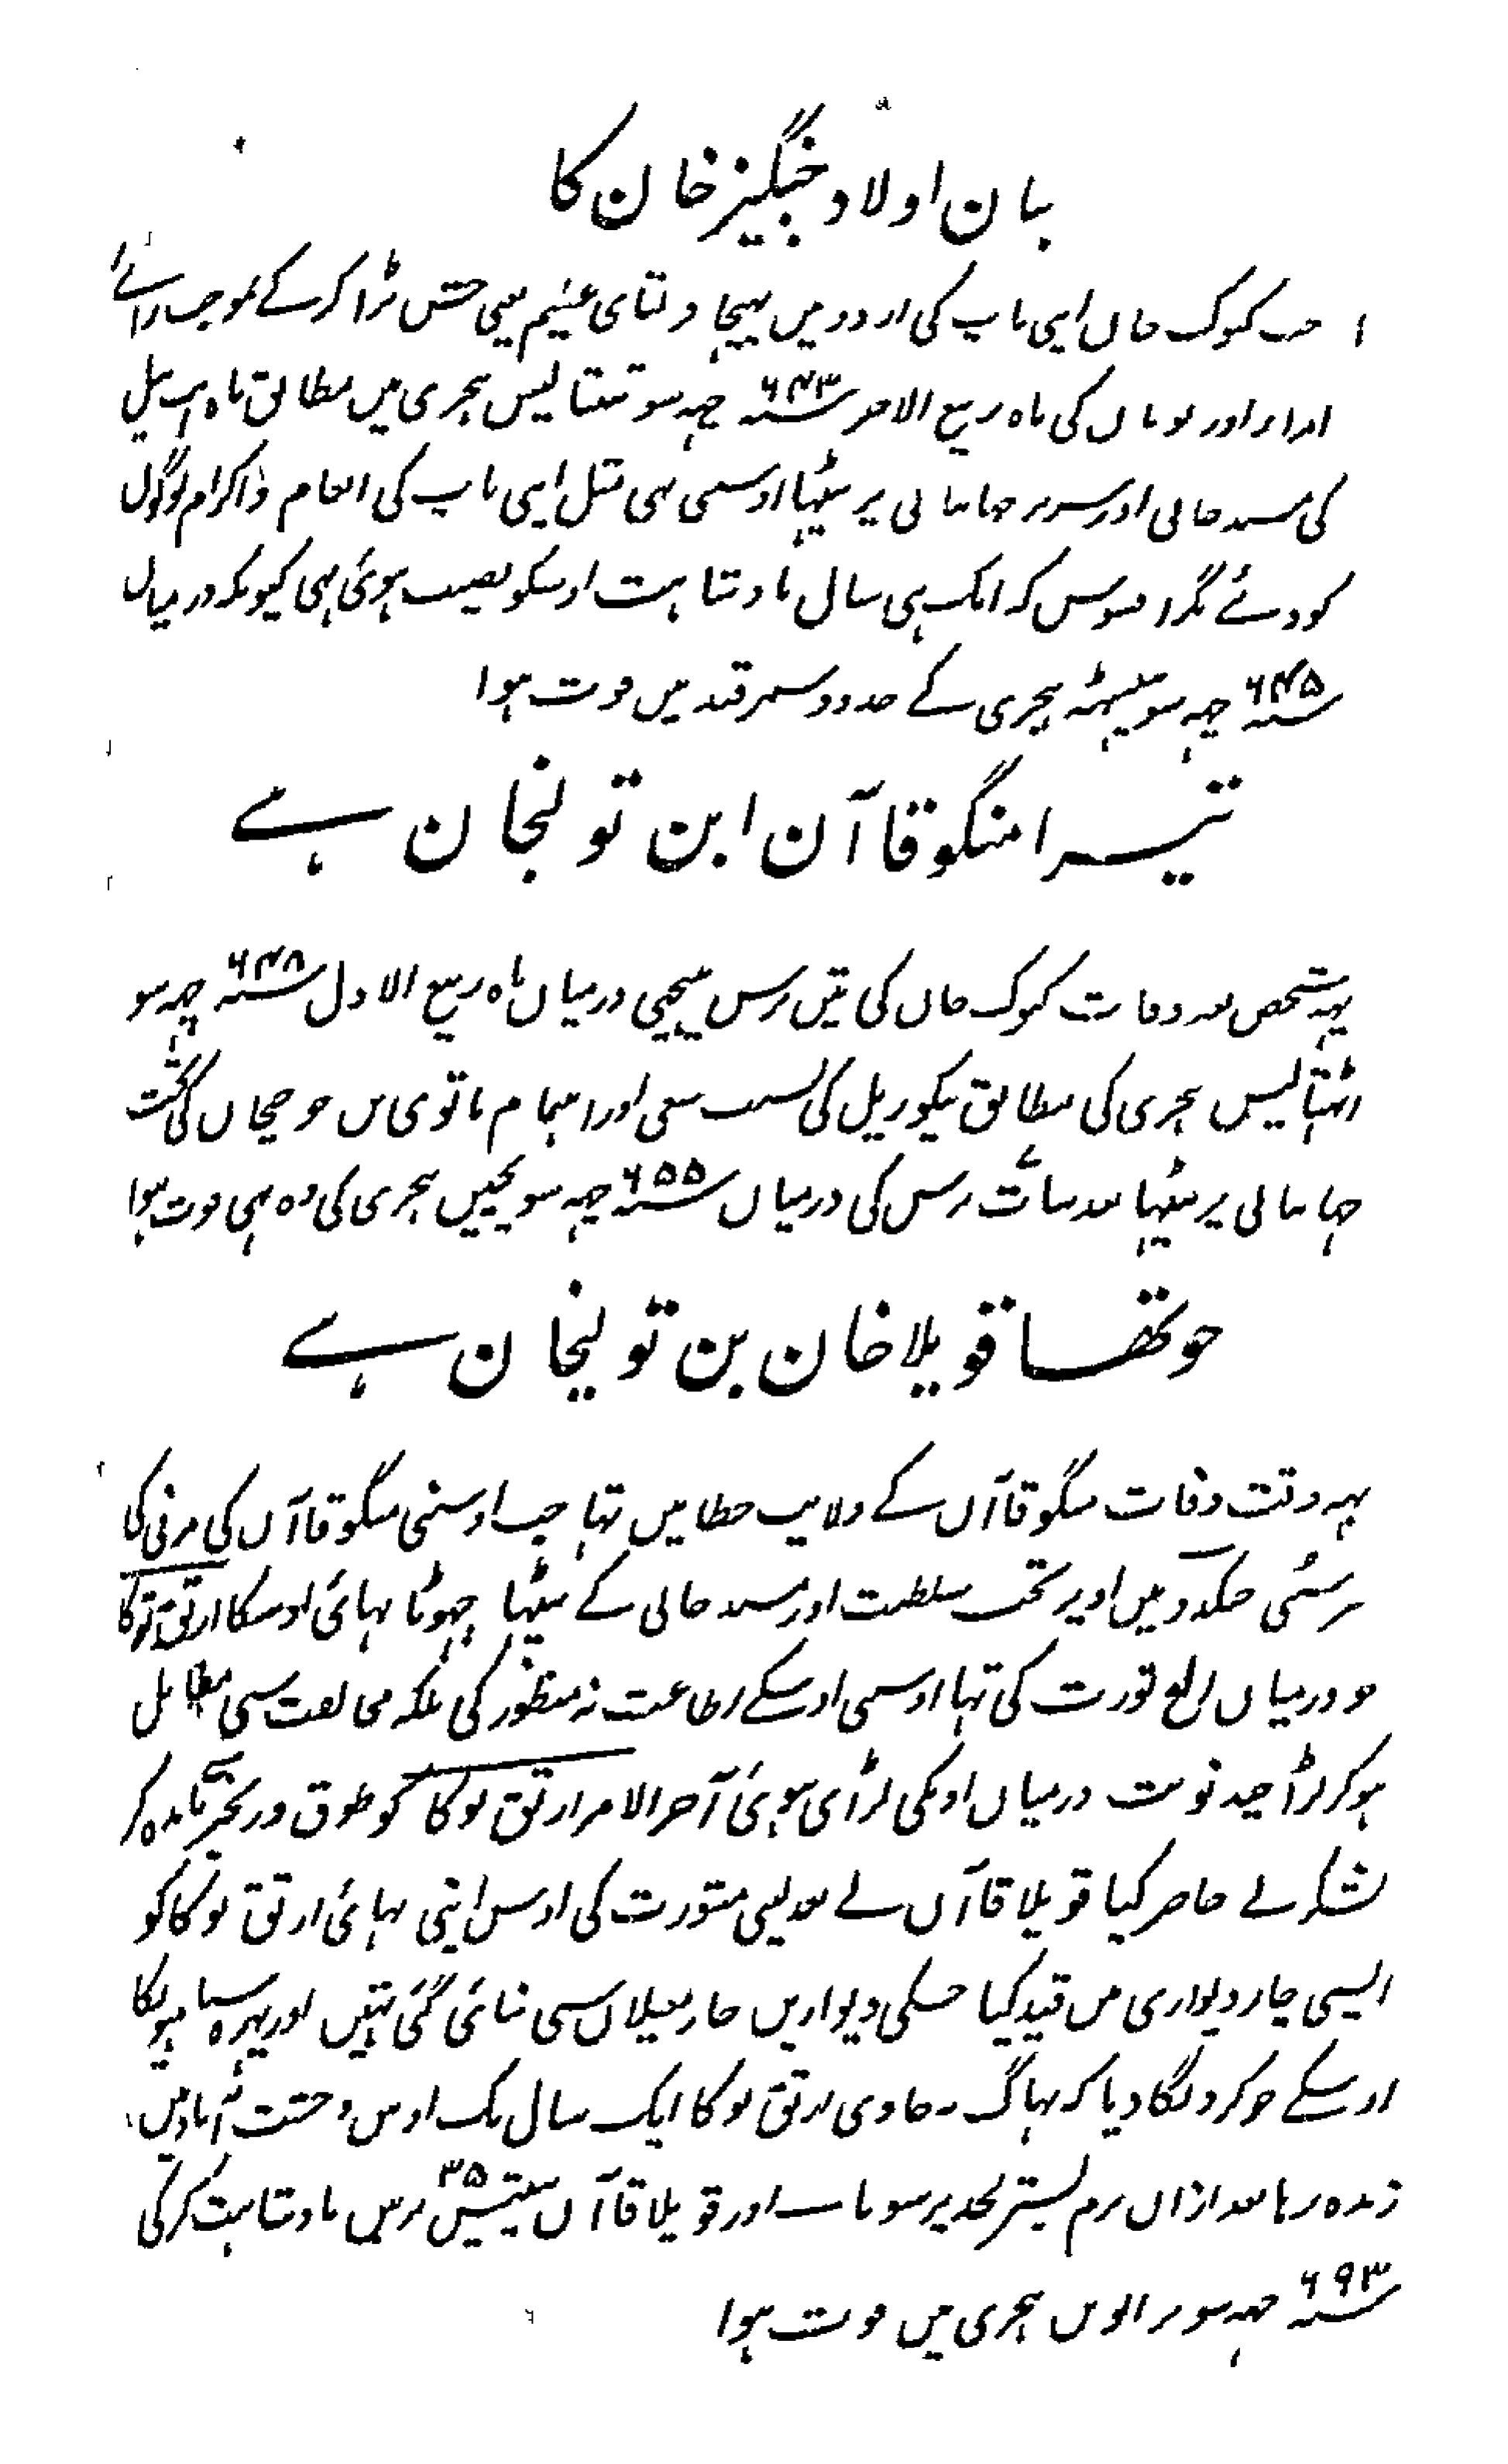 بیان اولاد چنگیز خان کا
جب کیوک خان اپنی باپ کی اردو میں پہنچا قتای عینم یعی جشن بڑا کرکے بموجب رائے
امرا اور نویان کی ماہ ربیع الاخر سنہ ۶۴۳ چہہ سو تینتالیس ہجری میں مطابق ماہ اپریل
کی مسند خانی اور سریر جہانبانی پر بیٹہا اوسی نبی مثل اپنی باپ کی انعام و اکرام لوگوں
کو دئے مگر افسوس کہ ایک ہی سال بادشاہت اوسکو نصیب ہوئی ہی کیونکہ درمیان
سنہ ۶۴۵ چہہ سو پینتالیس ہجری کے حدود سمرقند میں فوت ہوا
تیسرا منگو قاآن ابن تولیخان ہے
یہہ شخص بعد وفات کیوک خان کی تین برس پیچہی درمیان ماہ ربیع الاول سنہ ۶۴۸ چہہ سو
اڑتالیس ہجری کی مطابق یکوریل کی بسبب سعی اور اہتمام باتوی بن جوجیخان کی تخت
جہانبانی پر بیٹہا بعد سات برس کی درمیان سنہ ۶۵۵ چہہ سو پچپن ہجری کی وہ بہی فوت ہوا
چوتھا قویلا خان بن تولیخان ہے
یہہ وقت وفات منگو قاآن کے ولایت خطا میں تہا جب اوسنی منگو قاآن کی مرنی کا
سنی جلدو میں اوپر تخت سلطنت اور مسند خانی کے بیٹہا چہوٹا بہائی اوسکا ارتق بوکا
جو درمیان الغ یورت کی تہا اوسی اوسکے اطاعت نہ منظور کی بلکہ مخالفت سی مقابل
ہوکر لڑا چند نوبت درمیان اونکی لڑائی ہوئی آخر الامر ارتق بوکا کو طوق و زنجیر باندہ کر
لشکر نے حاضر کیا قویلا قاآن نے بعد لینی مشورت کی اوس اپنی بہائی ارتق بوکا کو
ایسی چار دیواری میں قید کیا جسکی دیواریں خار مغیلان سی بنائی گئی تہیں اور پہرہ سپاہیونکا
اوسکے چوگرد لگا دیا کہ بہاگ نجاوی ارتق بوکا ایک سال تک اوس وحشت آباد میں
زندہ رہا بعد ازاں نرم بستر لحد پر سویا اور قویلا قاآن پینتیس ۳۵ برس بادشاہت کرکی
سنہ ۶۹۳ چہہ سو ترانویں ہجری میں فوت ہوا